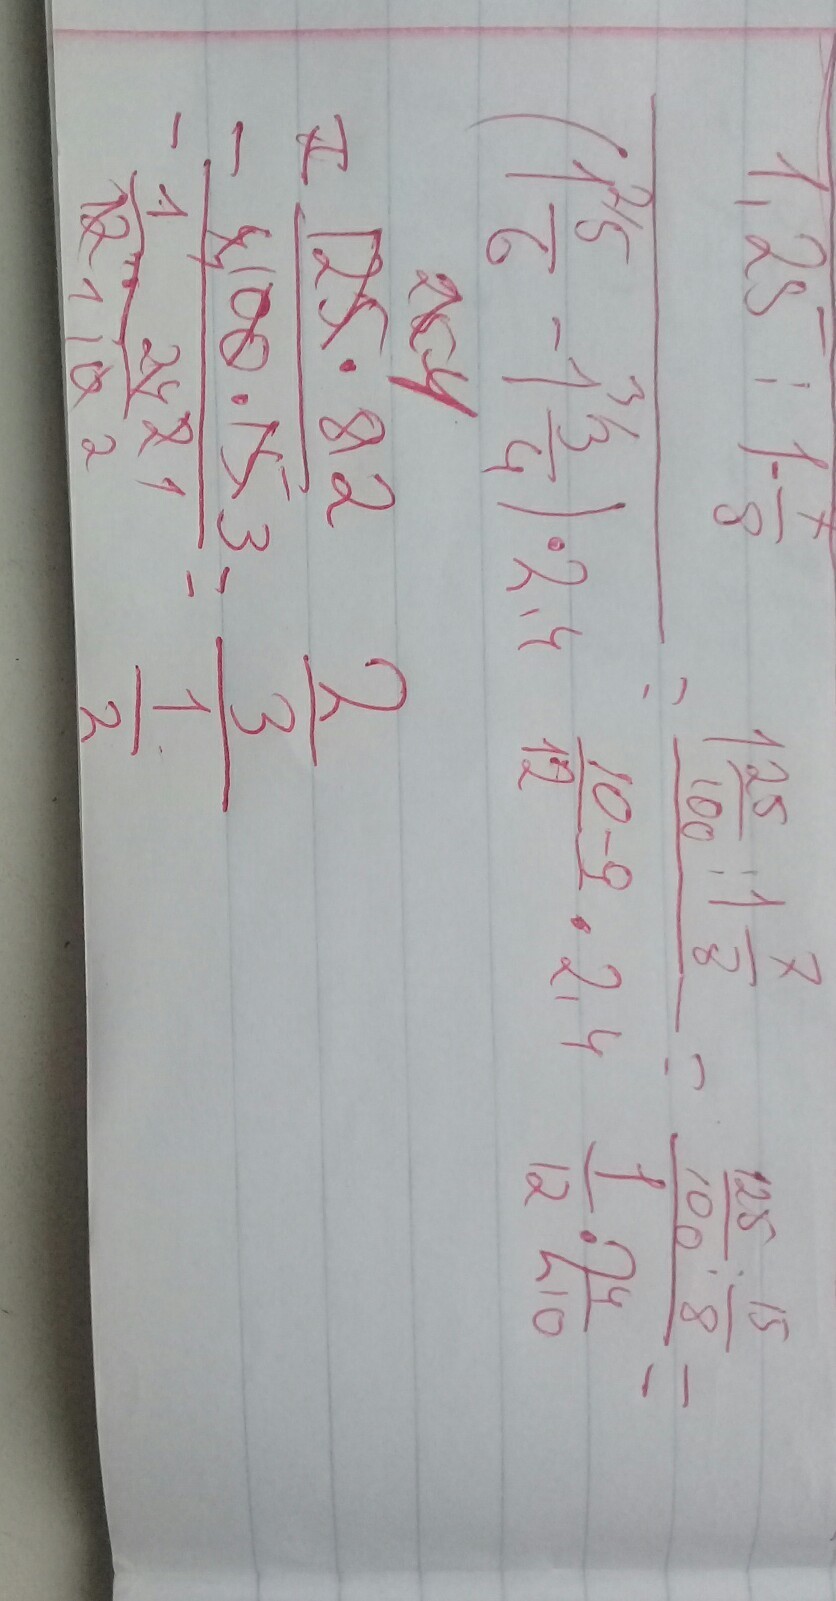 1,25 : 1 7/8
(1 5/6 - 1 3/4) · 2,4
= 1 25/100 : 1 7/8
10-9/12 · 2,4
= 125/100 : 15/8
1/12 · 2 4/10
=
125 · 8 2
100 · 15 3
1/12 · 24 2 1/1 10 2
= 2/3
1/2